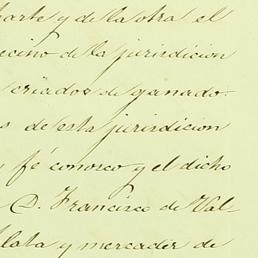 parte y de la otra el
ecino de la jurisdicion
criador de ganado.
s de esta jurisdicion
fé conosco y el dicho
D. Francisco de Val-
Plata y mercader de